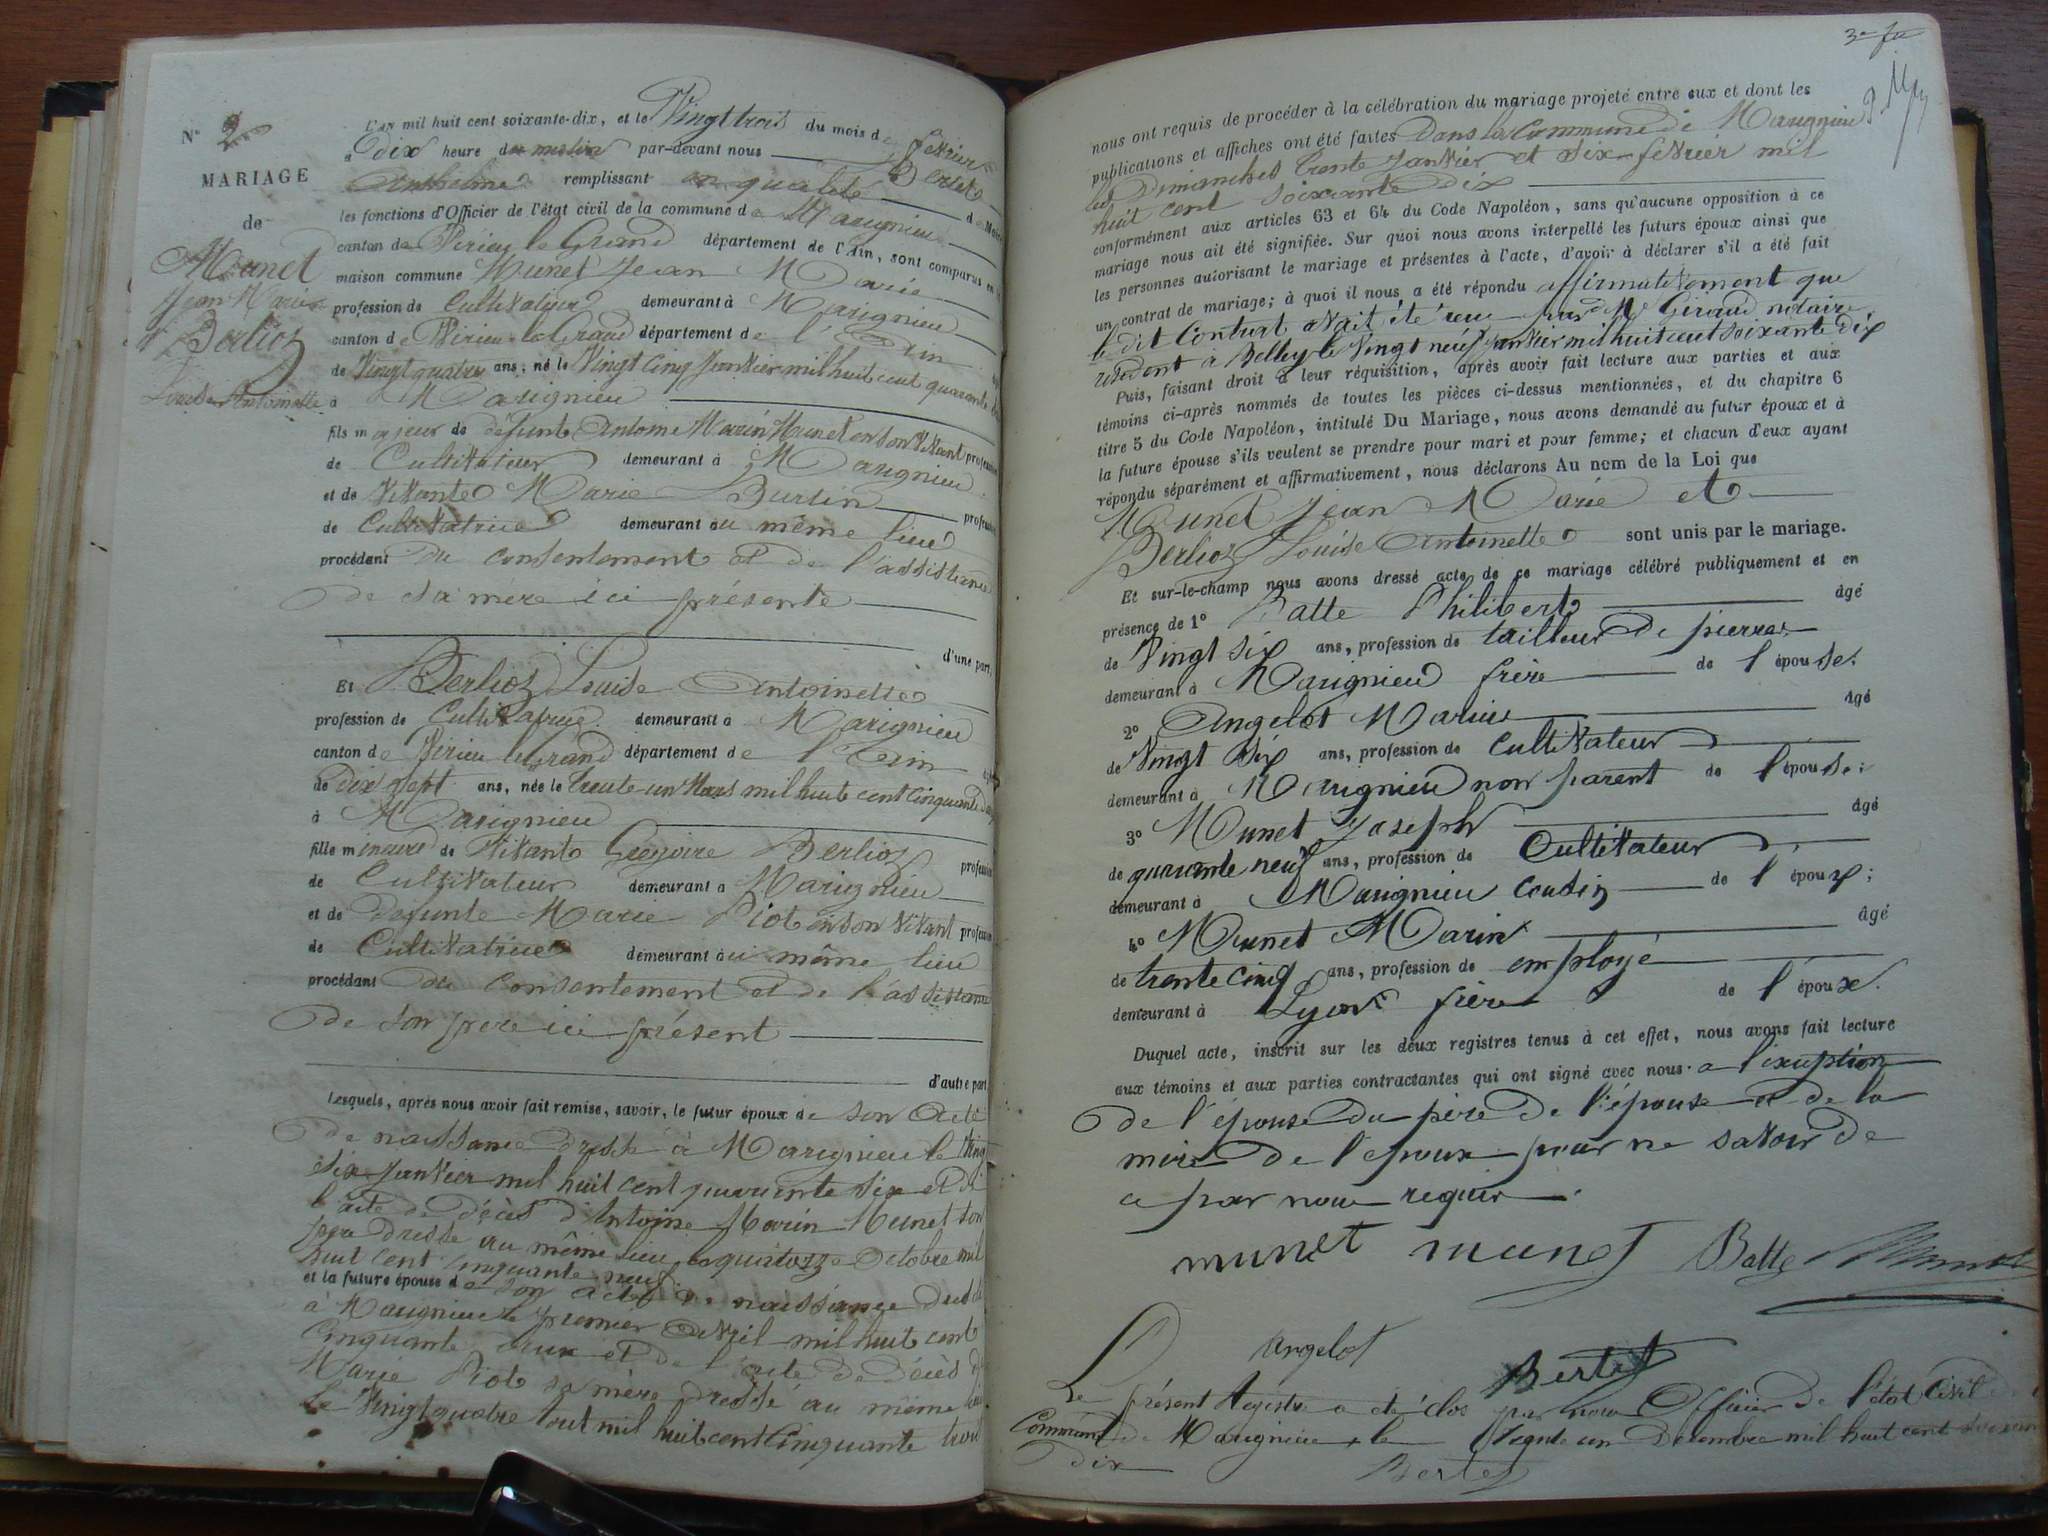 N° 2
MARIAGE
de
Munet
Jean Marie
et Berlioz
Louise Antoinette
L'an mil huit cent soixante-dix, et le Vingt trois du mois de fevrier
à dix heure du matin par-devant nous Bertet
Anthelme remplissant en qualité de Maire
les fonctions d'Officier de l'état civil de la commune de Marignieu
canton de Virieu le Grand département de l'Ain, sont comparus en la
maison commune Munet Jean Marie
profession de Cultivateur demeurant à Marignieu
canton de Virieu le Grand département de l'Ain
de Vingt quatre ans; né le Vingt cinq Janvier mil huit cent quarante
à Marignieu
fils majeur de défunt Antoine Marin Munet en son vivant profession
de Cultivateur demeurant à Marignieu
et de Vivante Marie Burtin profession
de Cultivatrice demeurant au même lieu
procédant du consentement et de l'assistance
de sa mère ici présente
d'une part,
Et Berlioz Louise Antoinette
profession de Cultivatrice demeurant à Marignieu
canton de Virieu le Grand département de l'Ain
de dix sept ans, née le trente un Mars mil huit cent cinquante deux
à Marignieu
fille mineure de Vivant Gregoire Berlioz profession
de Cultivateur demeurant à Marignieu
et de défunte Marie Piot en son vivant profession
de Cultivatrice demeurant au même lieu
procédant du consentement et de l'assistance
de son père ici présent
d'autre part,
Lesquels, après nous avoir fait remise, savoir, le futur époux de son acte
de naissance dressé à Marignieu le Vingt
six Janvier mil huit cent quarante six et de
l'acte de décès d'Antoine Marin Munet son
père dressé au même lieu le quatorze Octobre mil
huit cent cinquante neuf.
et la future épouse de son acte de naissance dressé
à Marignieu le premier Avril mil huit cent
cinquante deux et de l'acte de décès de
Marie Piot sa mère dressé au même lieu
le Vingt quatre Aout mil huit cent cinquante trois
3e
nous ont requis de procéder à la célébration du mariage projeté entre eux et dont les
publications et affiches ont été faites dans la Commune de Marignieu
les Dimanches trente Janvier et six fevrier mil
huit cent soixante dix
conformément aux articles 63 et 64 du Code Napoléon, sans qu'aucune opposition à ce
mariage nous ait été signifiée. Sur quoi nous avons interpellé les futurs époux ainsi que
les personnes autorisant le mariage et présentes à l'acte, d'avoir à déclarer s'il a été fait
un contrat de mariage; à quoi il nous a été répondu affirmativement que
le dit Contrat avait été reçu par Me Giraud notaire,
résident à Belley le Vingt neuf Janvier mil huit cent soixante dix
Puis, faisant droit à leur réquisition, après avoir fait lecture aux parties et aux
témoins ci-après nommés de toutes les pièces ci-dessus mentionnées, et du chapitre 6
titre 5 du Code Napoléon, intitulé Du Mariage, nous avons demandé au futur époux et à
la future épouse s'ils veulent se prendre pour mari et pour femme; et chacun d'eux ayant
répondu séparément et affirmativement, nous déclarons Au nom de la Loi que
Munet Jean Marie et
Berlioz Louise Antoinette sont unis par le mariage.
Et sur-le-champ nous avons dressé acte de ce mariage célébré publiquement et en
présence de 1° Batte Philibert âgé
de Vingt six ans, profession de tailleur de pierres
demeurant à Marignieu frère de l'épouse.
2° Angelot Marius âgé
de Vingt six ans, profession de Cultivateur
demeurant à Marignieu non parent de l'épouse;
3° Munet Joseph âgé
de quarante neuf ans, profession de Cultivateur
demeurant à Marignieu Cousin de l'époux;
4° Munet Marin âgé
de trente cinq ans, profession de employé
demeurant à Lyon frère de l'époux.
Duquel acte, inscrit sur les deux registres tenus à cet effet, nous avons fait lecture
aux témoins et aux parties contractantes qui ont signé avec nous. a l'exception
de l'épouse du père de l'épouse et de la
mère de l'époux pour ne savoir de
ce par nous requis.
munet munet Batte Munet
Angelot Bertet
Le présent Registre a été clos par nous Officier de l'état Civil de la
Commune de Marignieu le trente un Décembre mil huit cent soixante
dix Bertet